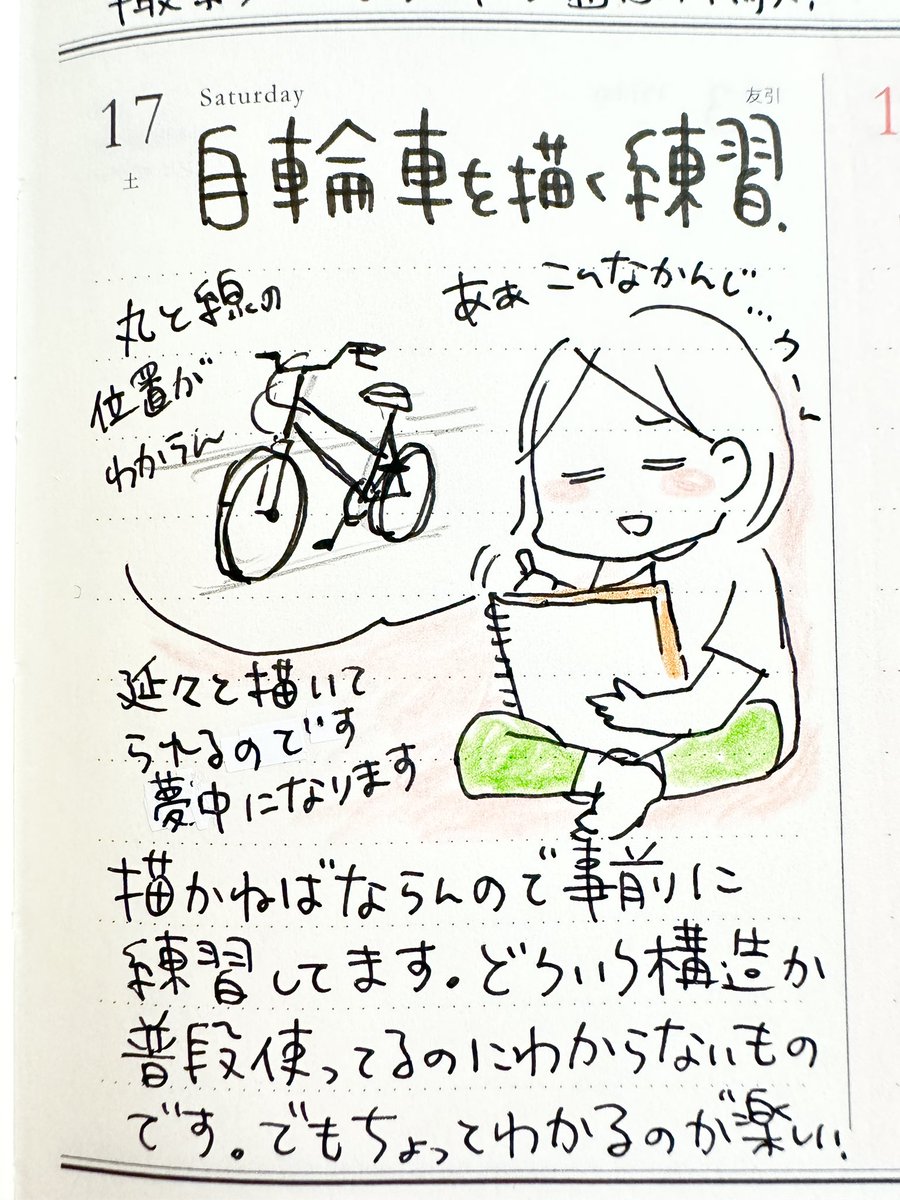 17
Saturday
友引
土
自輪車を描く練習.
丸と線の
位置が
わからん
ああ こんなかんじ…
うーん
延々と描いて
られるのです
夢中になります
描かねばならんので事前に
練習してます。どういう構造か
普段使ってるのにわからないもの
です。でもちょってわかるのが楽しい
1